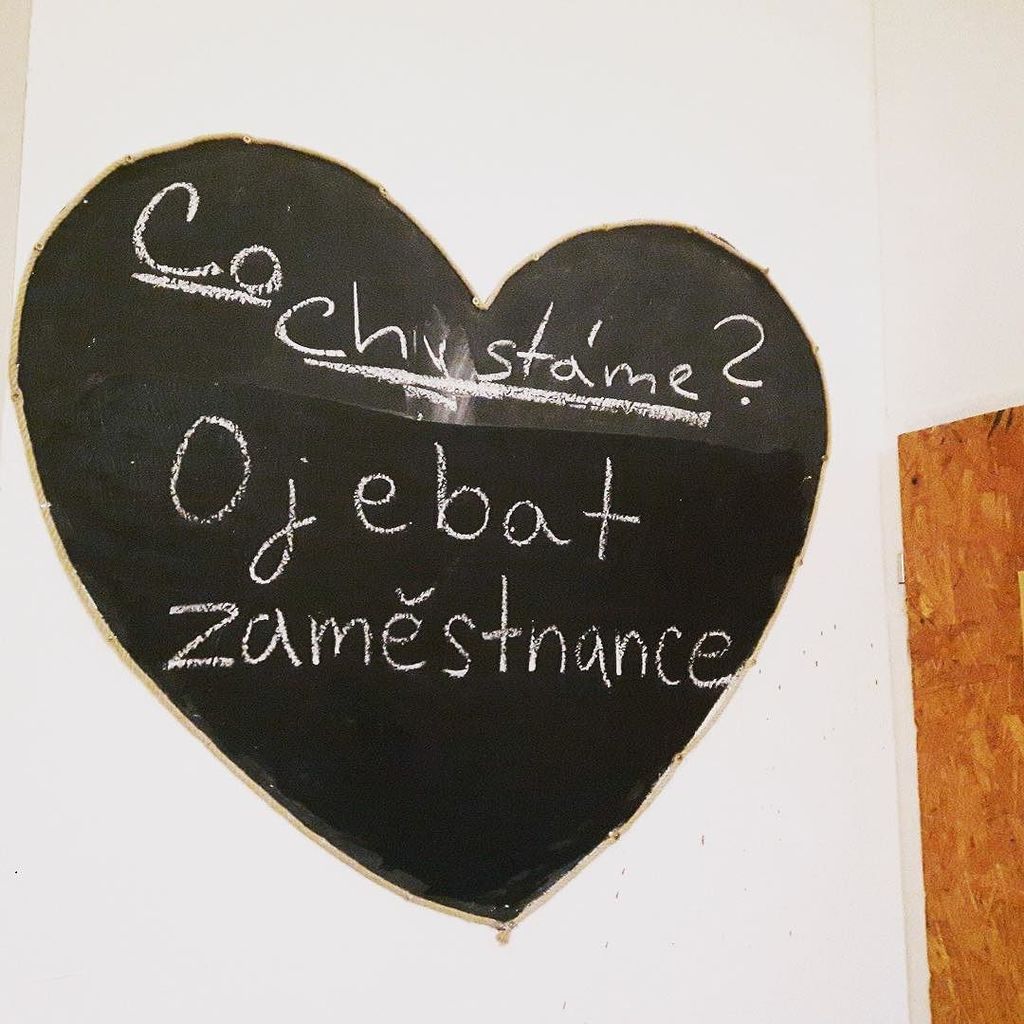 Co
chystáme?
Ojebat
zaměstnance